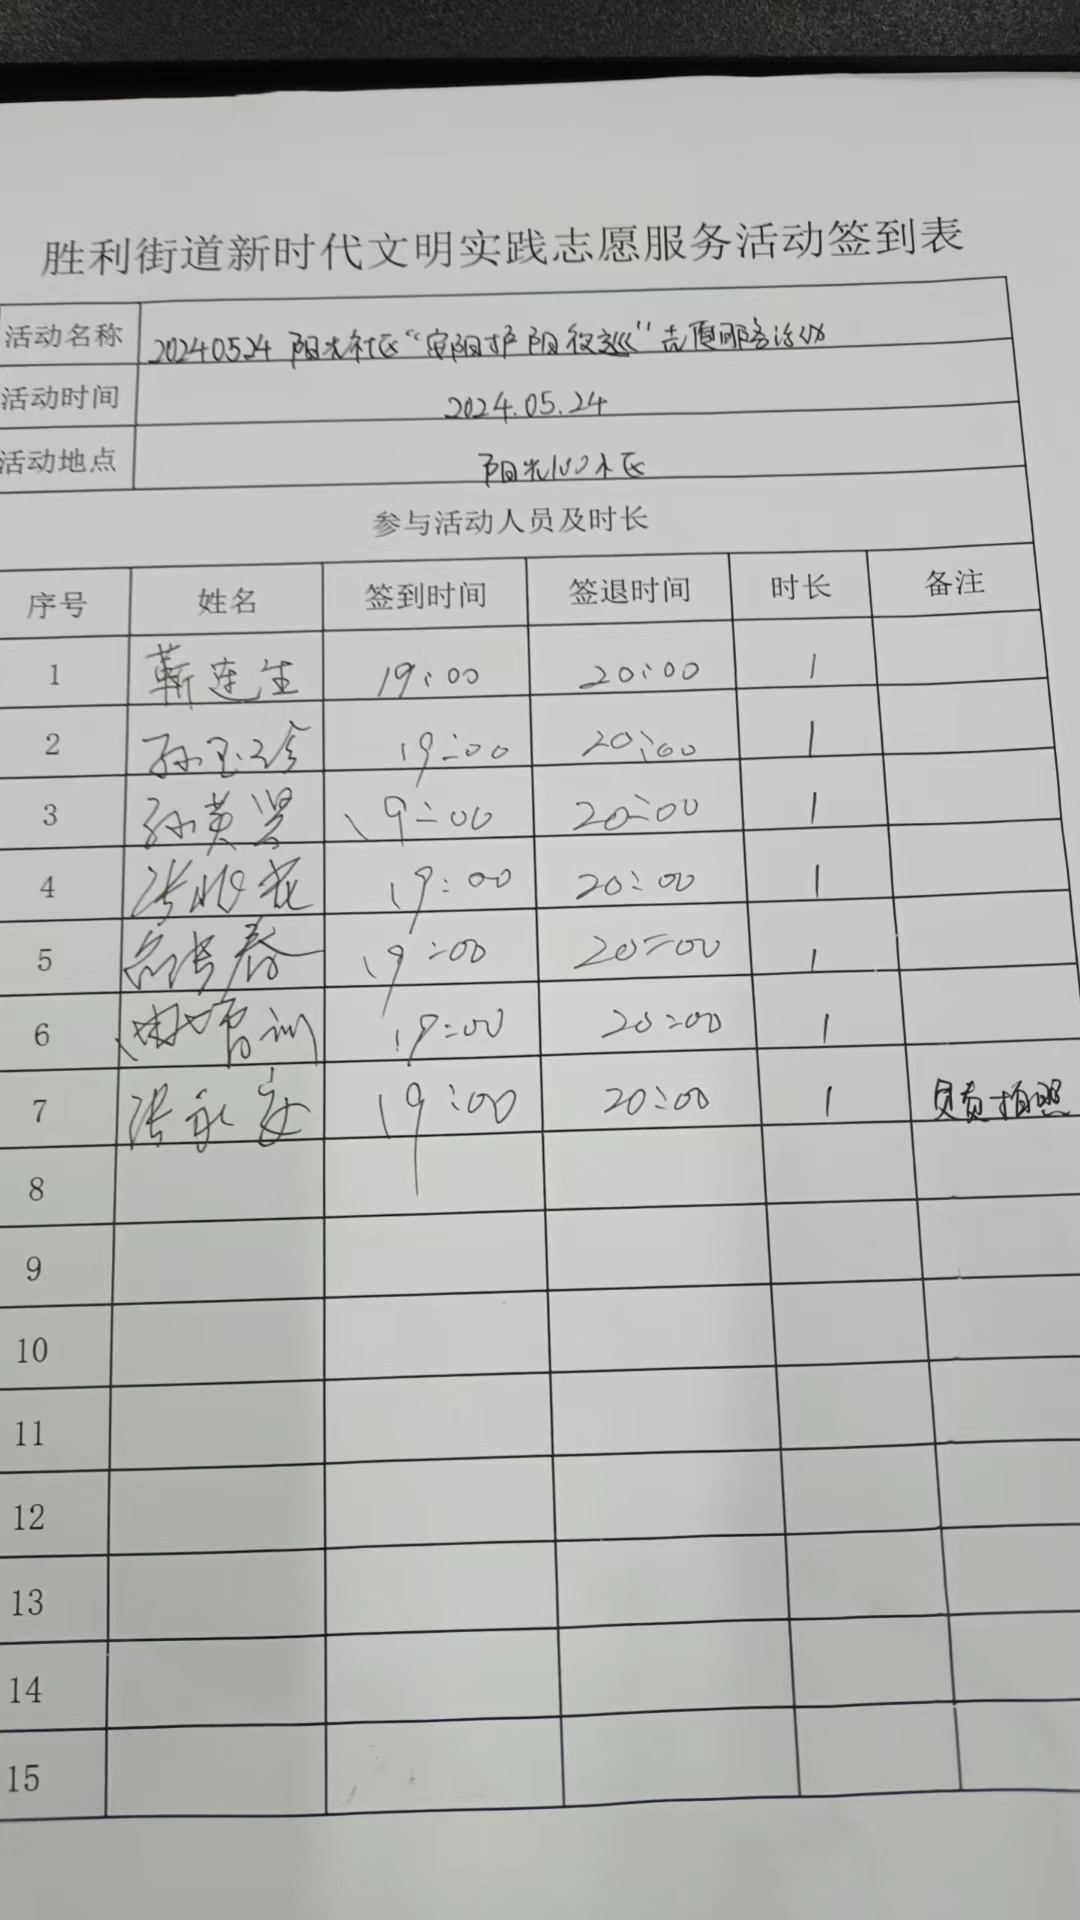 胜利街道新时代文明实践志愿服务活动签到表
活动名称 20240524 阳光社区“安阳护阳夜巡”志愿服务活动
活动时间 2024.05.24
活动地点 阳光100小区
参与活动人员及时长
序号 姓名 签到时间 签退时间 时长 备注
1 靳连生 19:00 20:00 1
2 孙玉珍 19:00 20:00 1
3 孙英贤 19:00 20:00 1
4 张 19:00 20:00 1
5 春 19:00 20:00 1
6 训 19:00 20:00 1
7 张永安 19:00 20:00 1 负责拍照
8
9
10
11
12
13
14
15